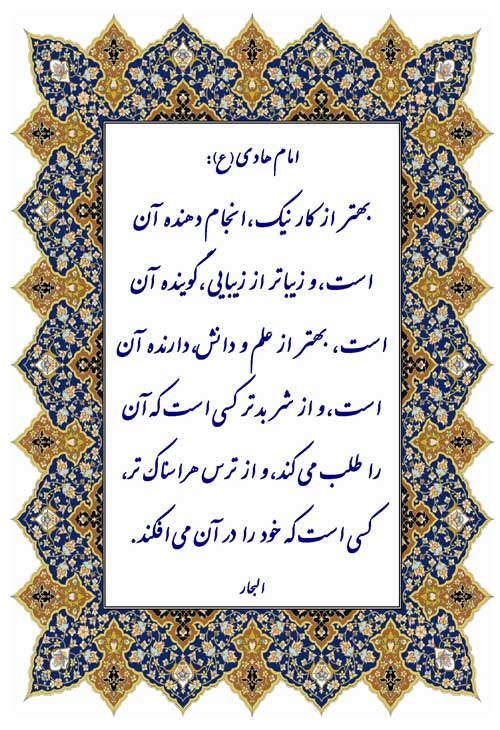 امام هادی(ع):
بهتر از کار نیک، انجام دهنده آن
است، و زیباتر از زیبایی، گوینده آن
است، بهتر از علم و دانش، دارنده آن
است، و از شر بدتر کسی است که آن
را طلب می کند، و از ترس هراسناک تر،
کسی است که خود را در آن می افکند.
البحار